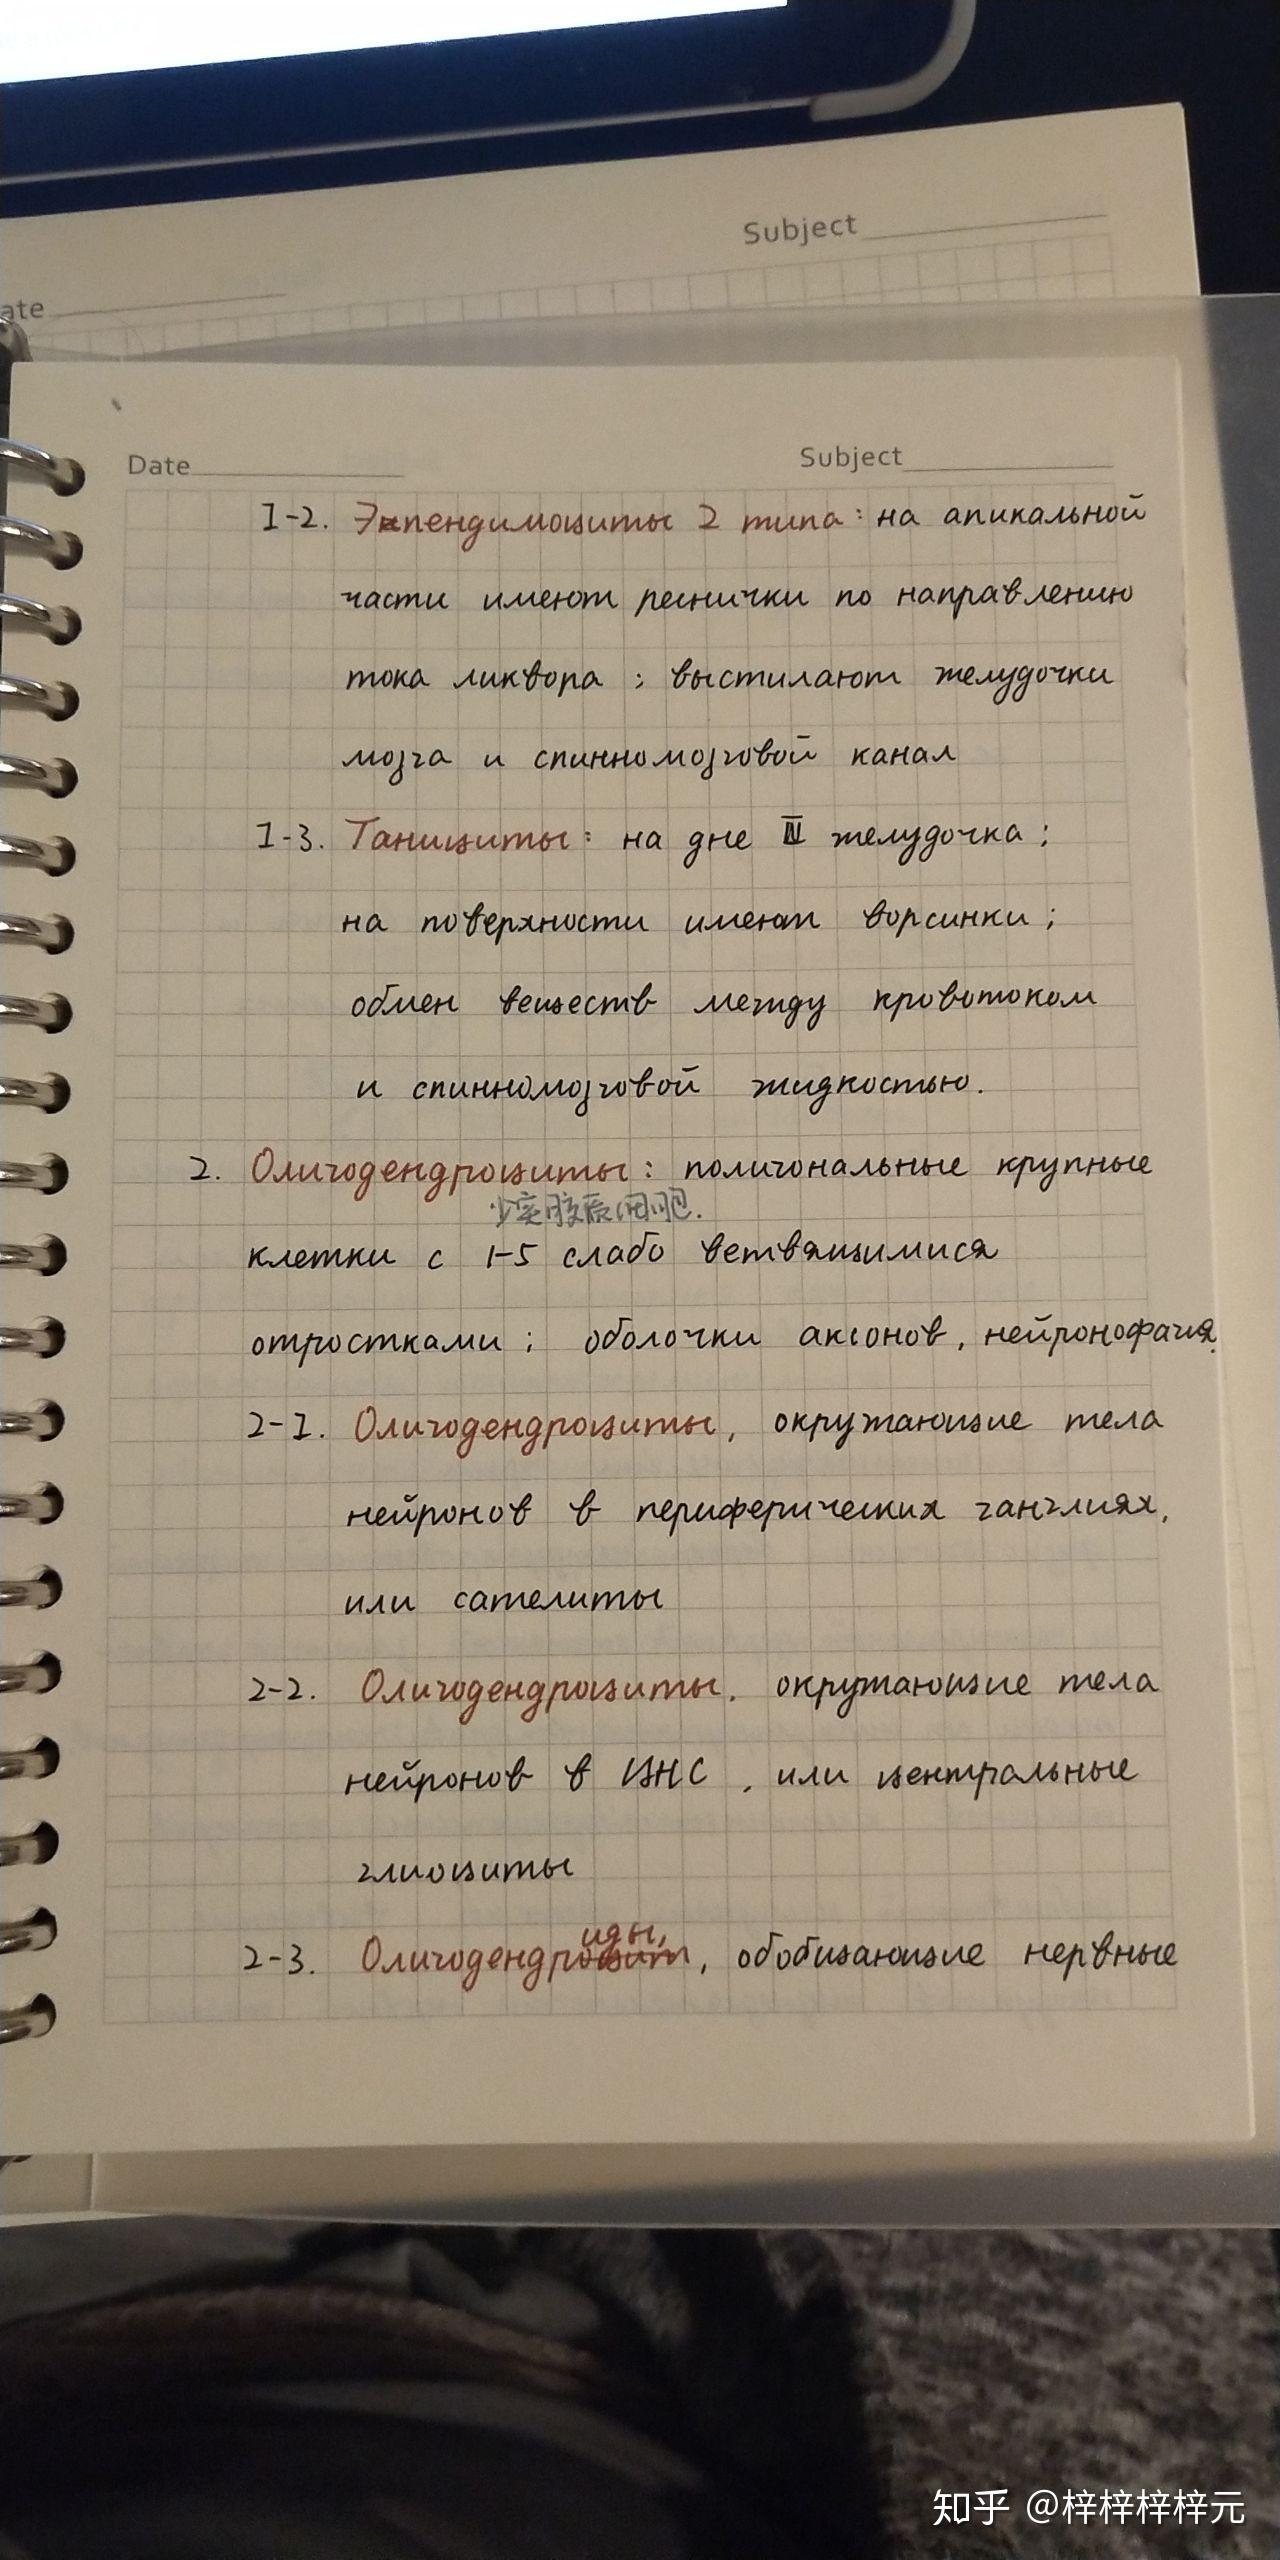 Subject
ate
Date
Subject
1-2. Эпендимоциты 2 типа: на апикальной
части имеют реснички по направлению
тока ликвора ; выстилают желудочки
мозга и спинномозговой канал
1-3. Танициты: на дне III желудочка ;
на поверхности имеют ворсинки ;
обмен веществ между кровотоком
и спинномозговой жидкостью.
2. Олигодендроциты: полигональные крупные
少突胶质细胞.
клетки с 1-5 слабо ветвящимися
отростками ; оболочки аксонов, нейронофагия.
2-1. Олигодендроциты, окружающие тела
нейронов в периферических ганглиях,
или сателиты
2-2. Олигодендроциты, окружающие тела
нейронов в ЦНС , или центральные
глиоциты
иды,
2-3. Олигодендроцит, обобщающие нервные
知乎 @梓梓梓梓元